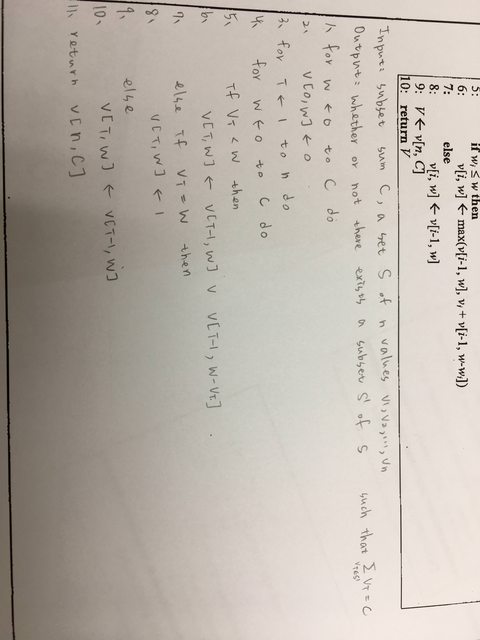 5: if wᵢ ≤ w then
6: v[i, w] ← max(v[i-1, w], vᵢ + v[i-1, w-wᵢ])
7: else
8: v[i, w] ← v[i-1, w]
9: V ← v[n, C]
10: return V
Input: subset sum C, a set S of n values v₁, v₂, ..., vₙ
Output: whether or not there exists a subset S' of S such that Σ vᵢ = C
vᵢ∈S'
1. for w ← 0 to C do
2. v[0,w] ← 0
3. for i ← 1 to n do
4. for w ← 0 to C do
5. if vᵢ < w then
6. v[i,w] ← v[i-1,w] ∨ v[i-1, w-vᵢ]
7. else if vᵢ = w then
8. v[i,w] ← 1
9. else
10. v[i,w] ← v[i-1,w]
11. return v[n,C]